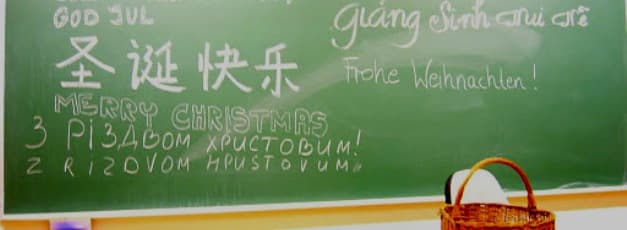 GOD JUL
Giáng Sinh
圣诞快乐
Frohe Weihnachten!
MERRY CHRISTMAS
З РІЗДВОМ ХРИСТОВИМ!
Z RIZDVOM HRUSTOVUM